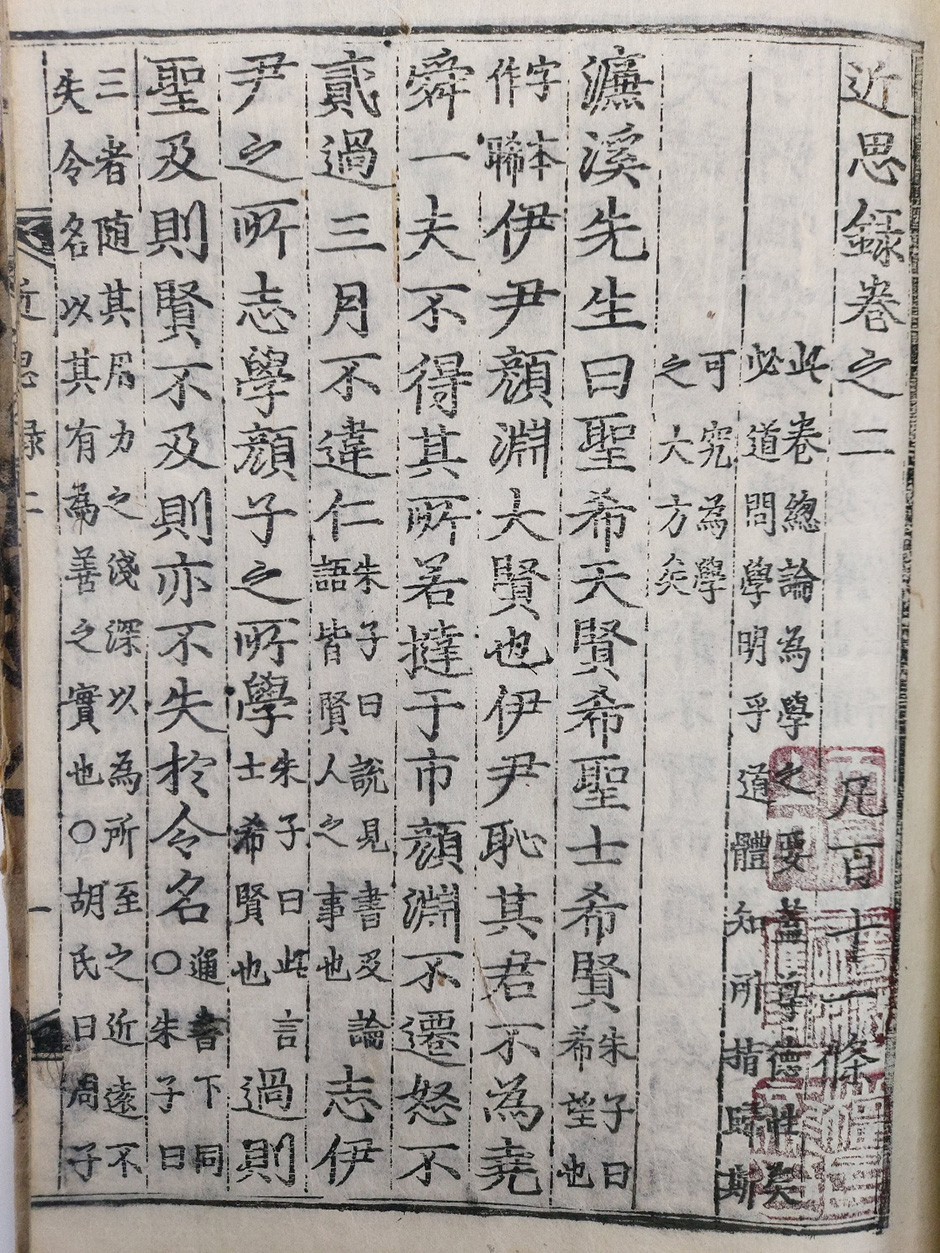 近思錄卷之二 凡百十一條
此卷總論為學之要蓋尊德性矣
必道問學明乎道體知所指歸斯
可究為學
之大方矣
濂溪先生曰聖希天賢希聖士希賢朱子曰希望也
字本作睎伊尹顏淵大賢也伊尹恥其君不為堯
舜一夫不得其所若撻于市顏淵不遷怒不
貳過三月不違仁朱子曰說見書及論語皆賢人之事也志伊
尹之所志學顏子之所學朱子曰此言士希賢也過則
聖及則賢不及則亦不失於令名○通書下同朱子曰
三者随其用力之淺深以為所至之近遠不
失令名以其有為善之實也○胡氏曰周子
近思录二 一